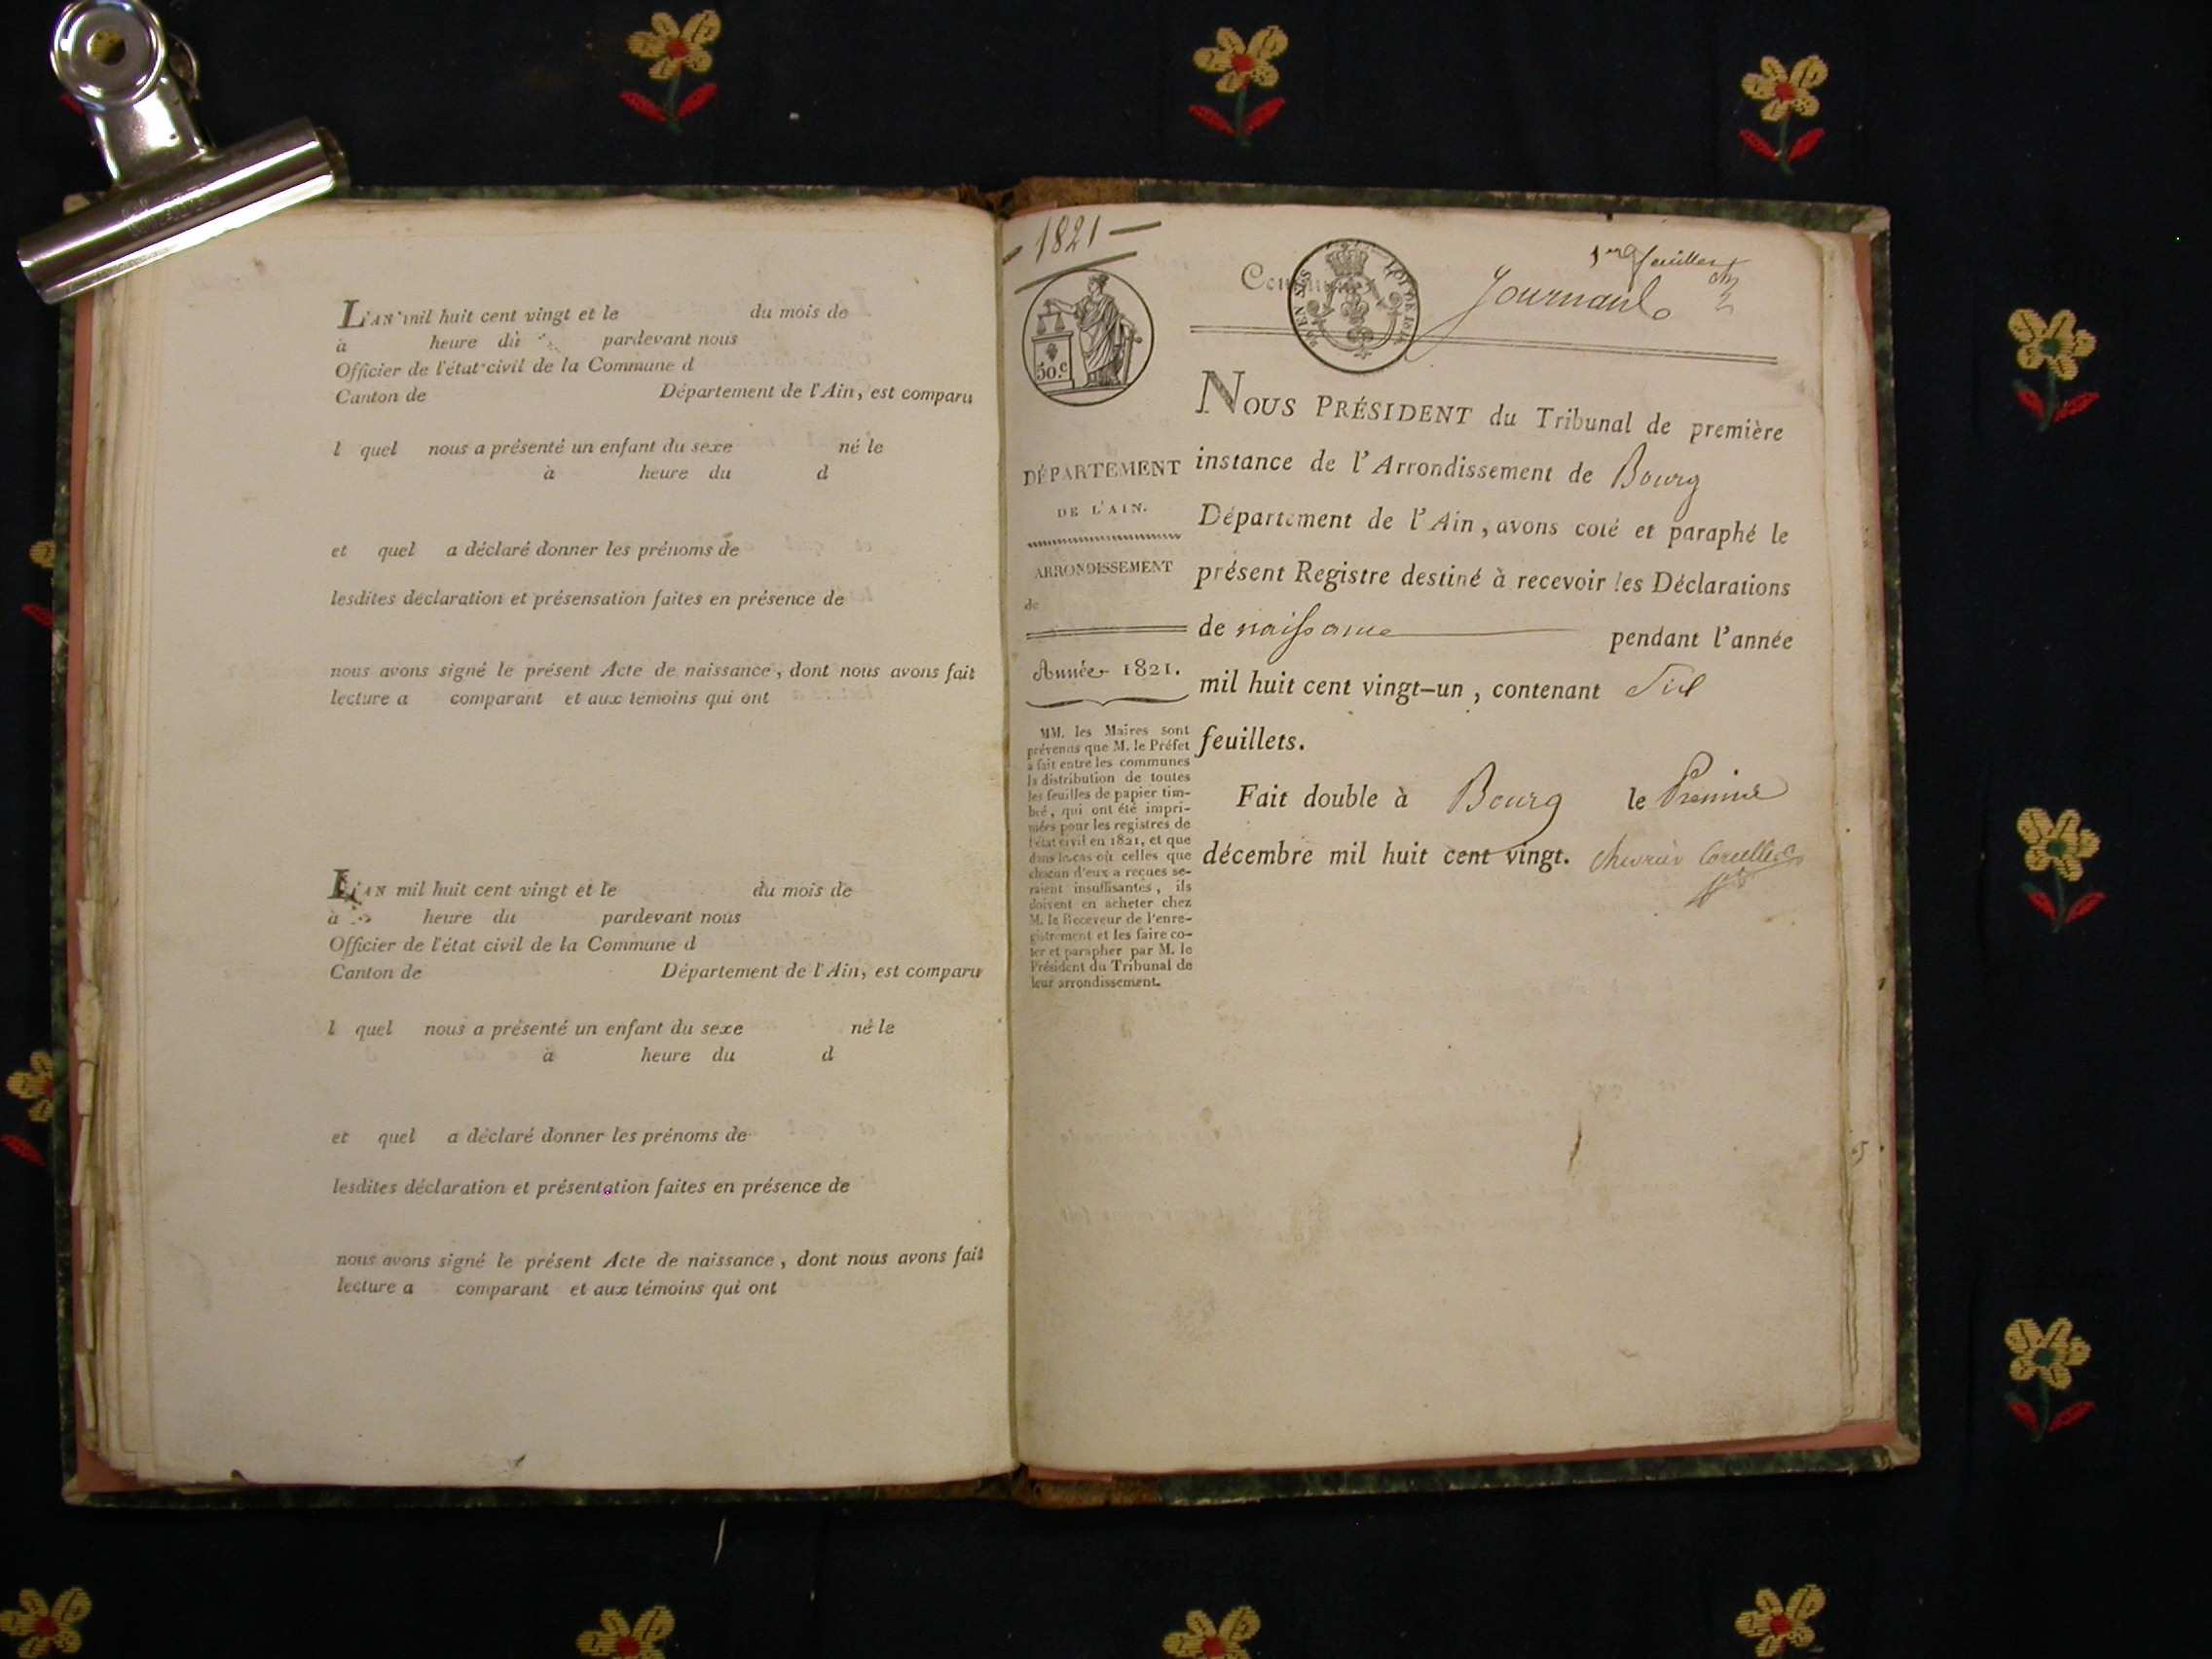 L'AN mil huit cent vingt et le du mois de
à heure du pardevant nous
Officier de l'état civil de la Commune d
Canton de Département de l'Ain, est comparu
l quel nous a présenté un enfant du sexe né le
à heure du d
et quel a déclaré donner les prénoms de
lesdites déclaration et présensation faites en présence de
nous avons signé le présent Acte de naissance, dont nous avons fait
lecture a comparant et aux témoins qui ont
L'AN mil huit cent vingt et le du mois de
à heure du pardevant nous
Officier de l'état civil de la Commune d
Canton de Département de l'Ain, est comparu
l quel nous a présenté un enfant du sexe né le
à heure du d
et quel a déclaré donner les prénoms de
lesdites déclaration et présentation faites en présence de
nous avons signé le présent Acte de naissance, dont nous avons fait
lecture a comparant et aux témoins qui ont
- 1821 -
50.c
1er feuillet
Journans
DÉPARTEMENT
DE L'AIN.
ARRONDISSEMENT
de
Année 1821.
MM. les Maires sont
prévenus que M. le Préfet
a fait entre les communes
la distribution de toutes
les feuilles de papier tim-
bré, qui ont été impri-
mées pour les registres de
l'état civil en 1821, et que
dans le cas où celles que
chacun d'eux a reçues se-
raient insuffisantes, ils
doivent en acheter chez
M. le Receveur de l'enre-
gistrement et les faire co-
ter et parapher par M. le
Président du Tribunal de
leur arrondissement.
NOUS PRÉSIDENT du Tribunal de première
instance de l'Arrondissement de Bourg
Département de l'Ain, avons coté et paraphé le
présent Registre destiné à recevoir les Déclarations
de naissance pendant l'année
mil huit cent vingt-un, contenant Six
feuillets.
Fait double à Bourg le Premier
décembre mil huit cent vingt.